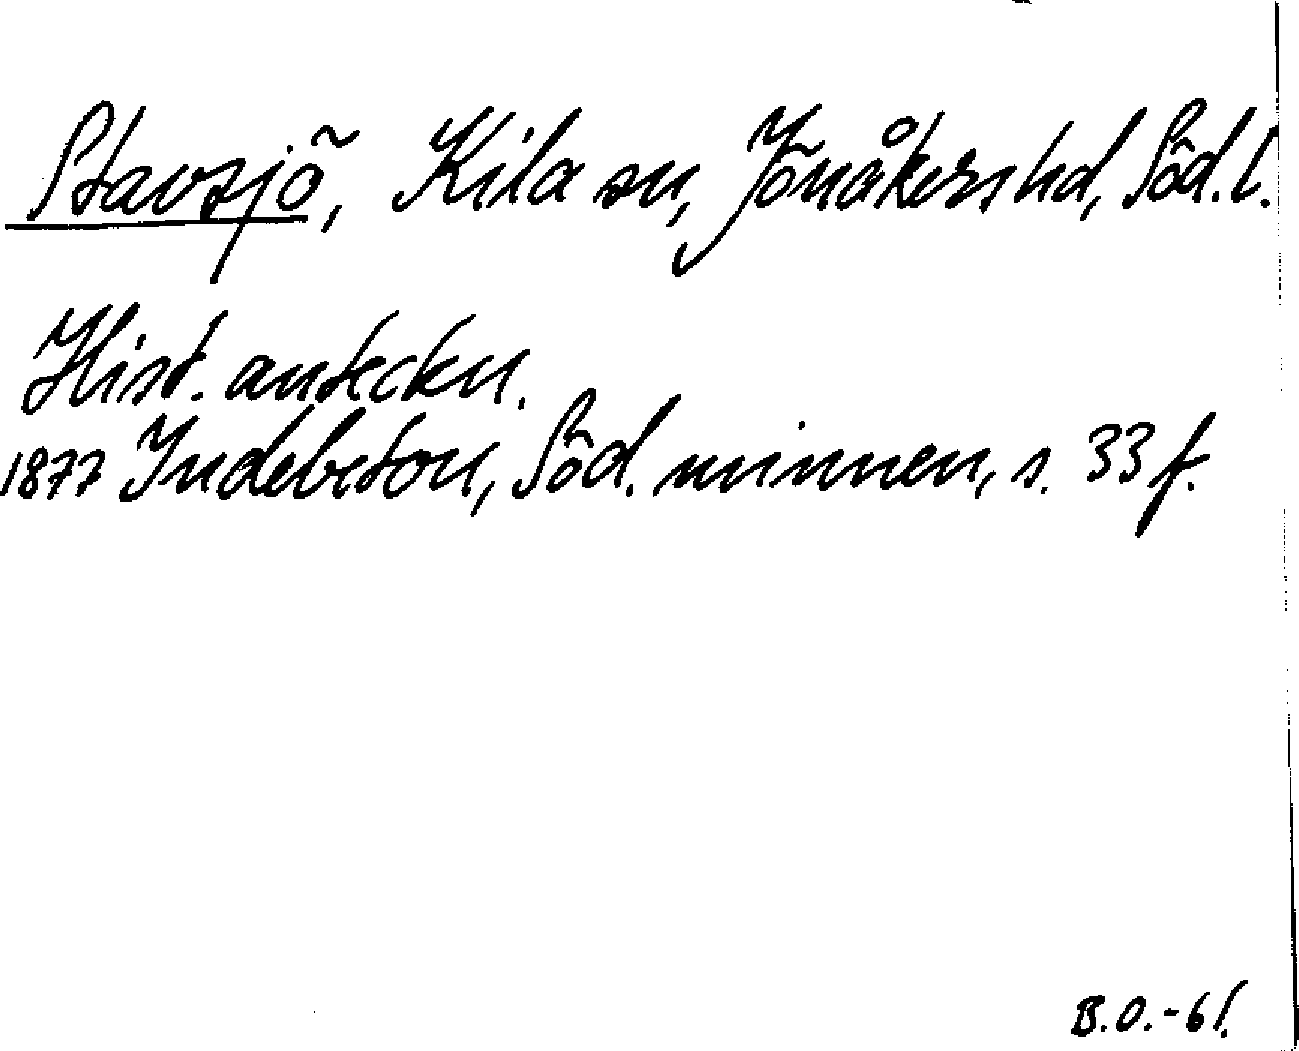 Stavsjö, Kila sn, Jönåkers hd, Söd. l.
Hist. anteckn.
1877 Indebetou, Söd. minnen, s. 33 f.
B.O.-61.